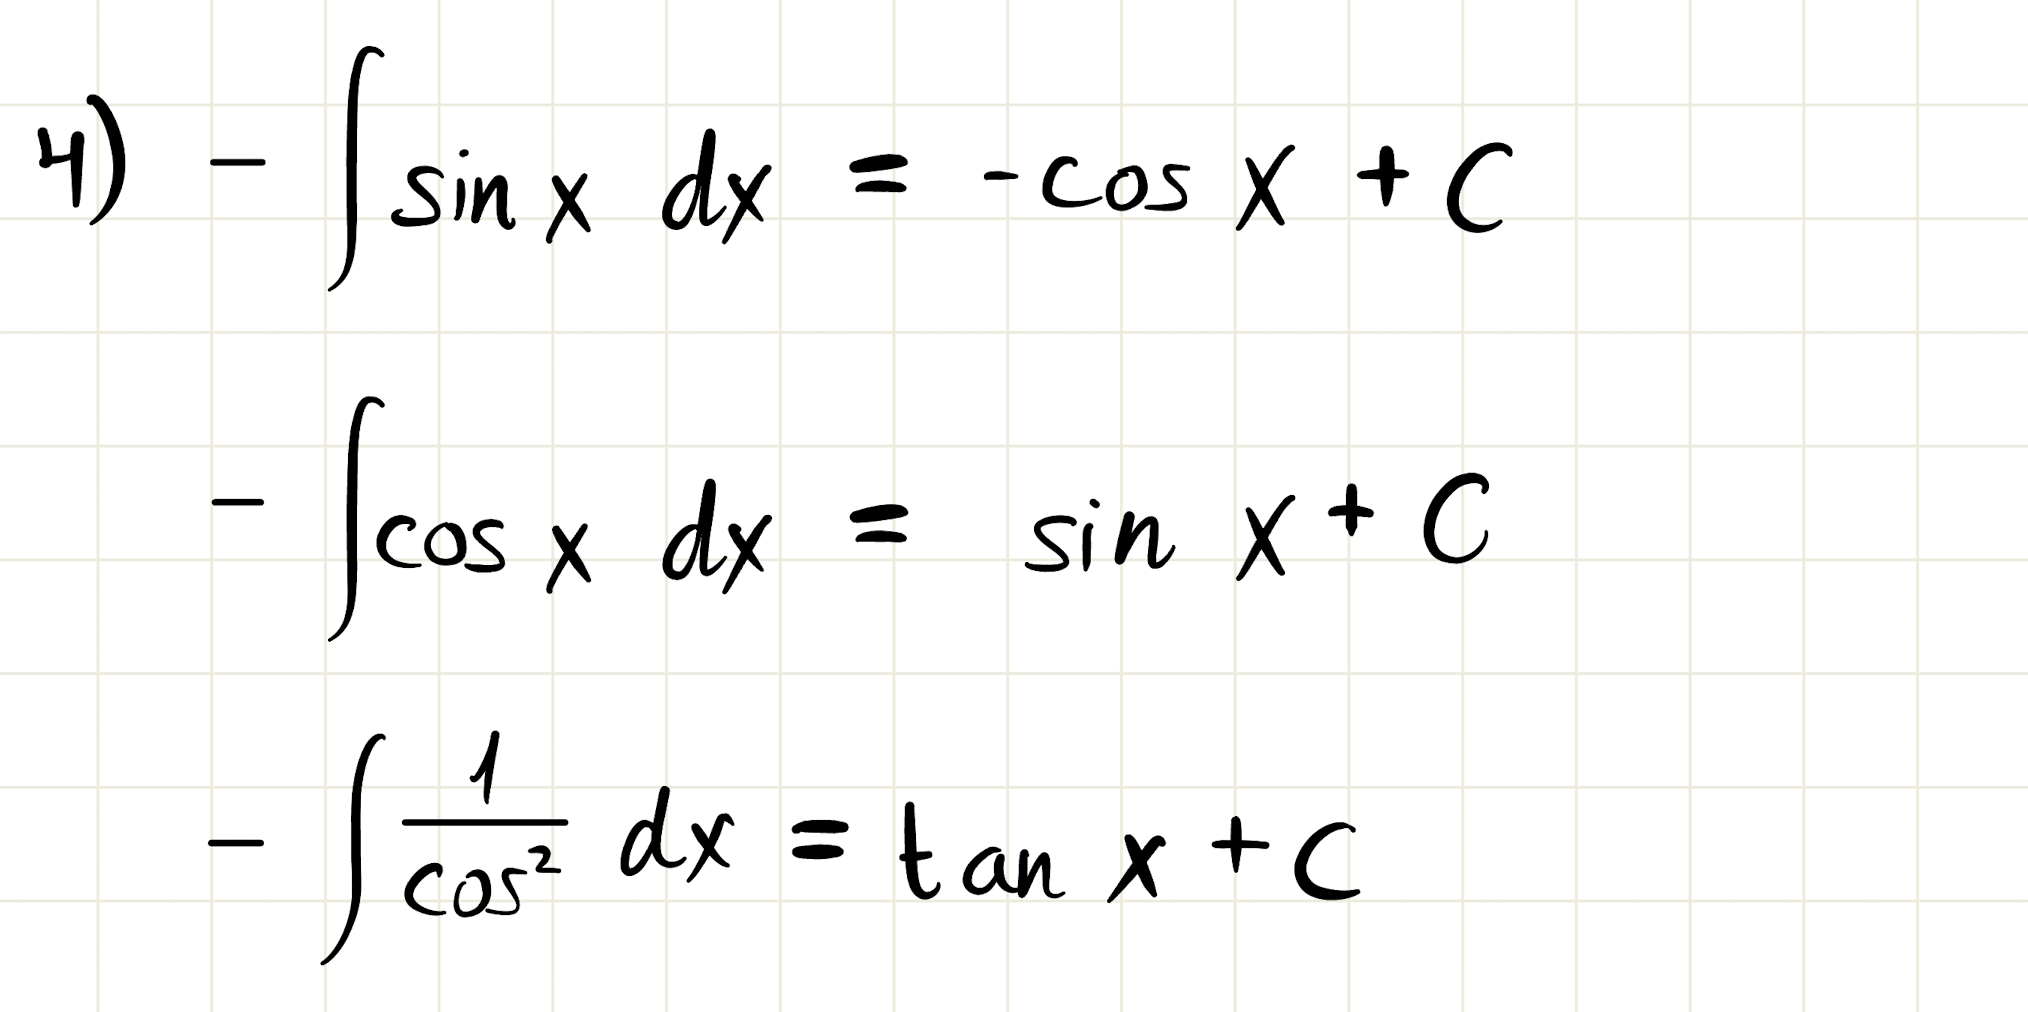 4) - ∫ sin x dx = -cos x + C
- ∫ cos x dx = sin x + C
- ∫ 1/cos² dx = tan x + C